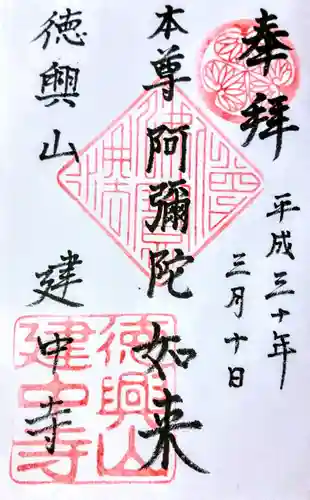 奉拝
平成三十年
三月十日
本尊 阿彌陀如来
徳興山
建中寺
徳興山
建中寺